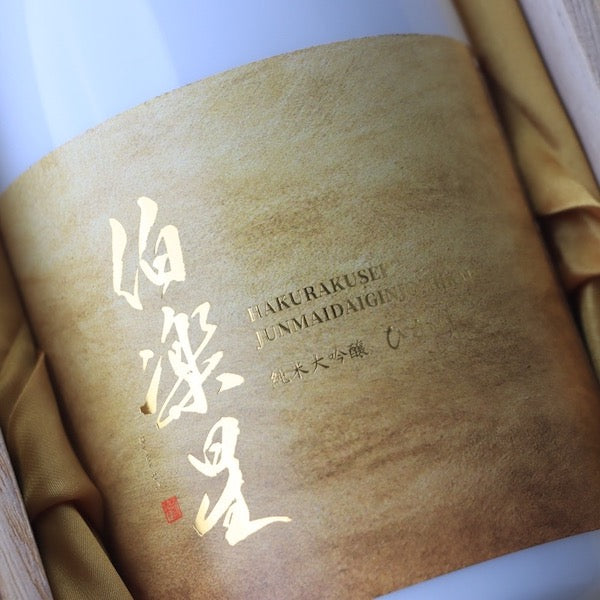 伯楽星
HAKURAKUSEI
JUNMAIDAIGINJO
純米大吟醸